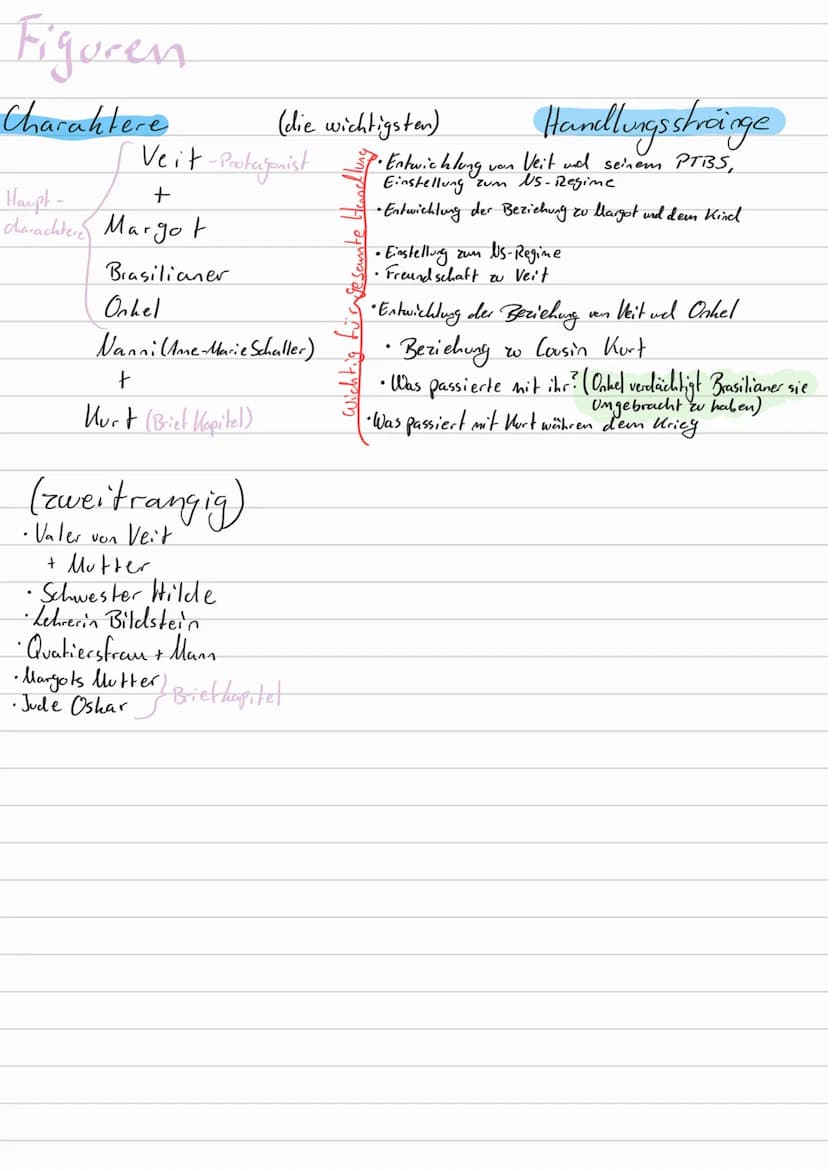 Figuren
Charaktere (die wichtigsten) Handlungsstränge
Veit - Protagonist
+
Haupt-
charachtere
Margot
Brasilianer
Onkel
Nanni (Anne-Marie Schaller)
+
Kurt (Brief Kapitel)
Wichtig für gesamte Handlung
• Entwicklung von Veit und seinem PTBS,
Einstellung zum NS-Regime
• Entwicklung der Beziehung zu Margot und dem Kind
• Einstellung zum NS-Regime
• Freundschaft zu Veit
• Entwicklung der Beziehung von Veit und Onkel
• Beziehung zu Cousin Kurt
• Was passierte mit ihr? (Onkel verdächtigt Brasilianer sie
umgebracht zu haben)
• Was passiert mit Kurt währen dem Krieg
(zweitrangig)
• Vater von Veit
+ Mutter
• Schwester Hilde
• Lehrerin Bildstein
• Quatiersfrau + Mann
• Margots Mutter
• Jude Oskar
Briefkapitel